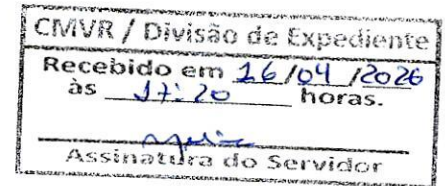 CMVR / Divisão de Expediente
Recebido em 16/04/2026
às 17:20 horas.
Assinatura do Servidor